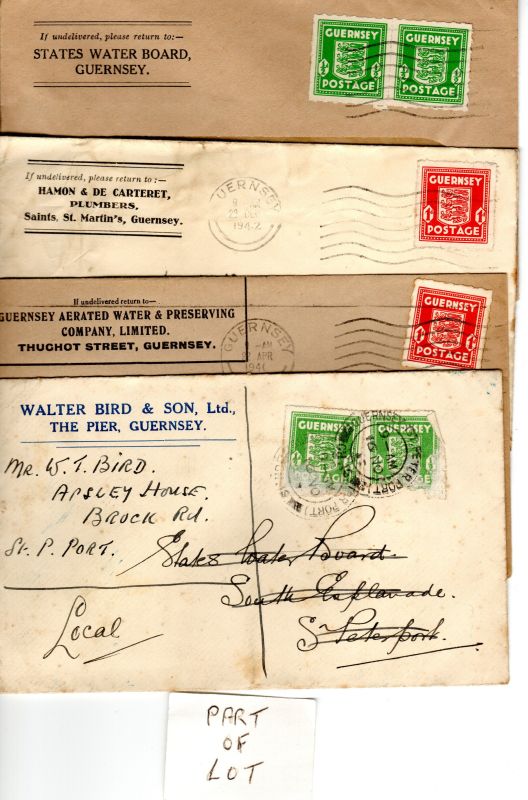 If undelivered, please return to:—
STATES WATER BOARD,
GUERNSEY.
GUERNSEY GUERNSEY
½ ½ ½ ½
POSTAGE POSTAGE
If undelivered, please return to :—
HAMON & DE CARTERET,
PLUMBERS,
Saints, St. Martin's, Guernsey.
GUERNSEY
1942
GUERNSEY
1D 1D
POSTAGE
If undelivered return to—
GUERNSEY AERATED WATER & PRESERVING
COMPANY, LIMITED.
THUCHOT STREET, GUERNSEY.
GUERNSEY
APR
GUERNSEY
1D 1D
POSTAGE
WALTER BIRD & SON, Ltd.,
THE PIER, GUERNSEY.
GUERNSEY
POSTAGE
Mr. W. T. BIRD.
APSLEY HOUSE.
BROCK RD.
St. P. PORT.
States Water Board.
South Esplanade.
St Peterport.
Local
PART
OF
LOT